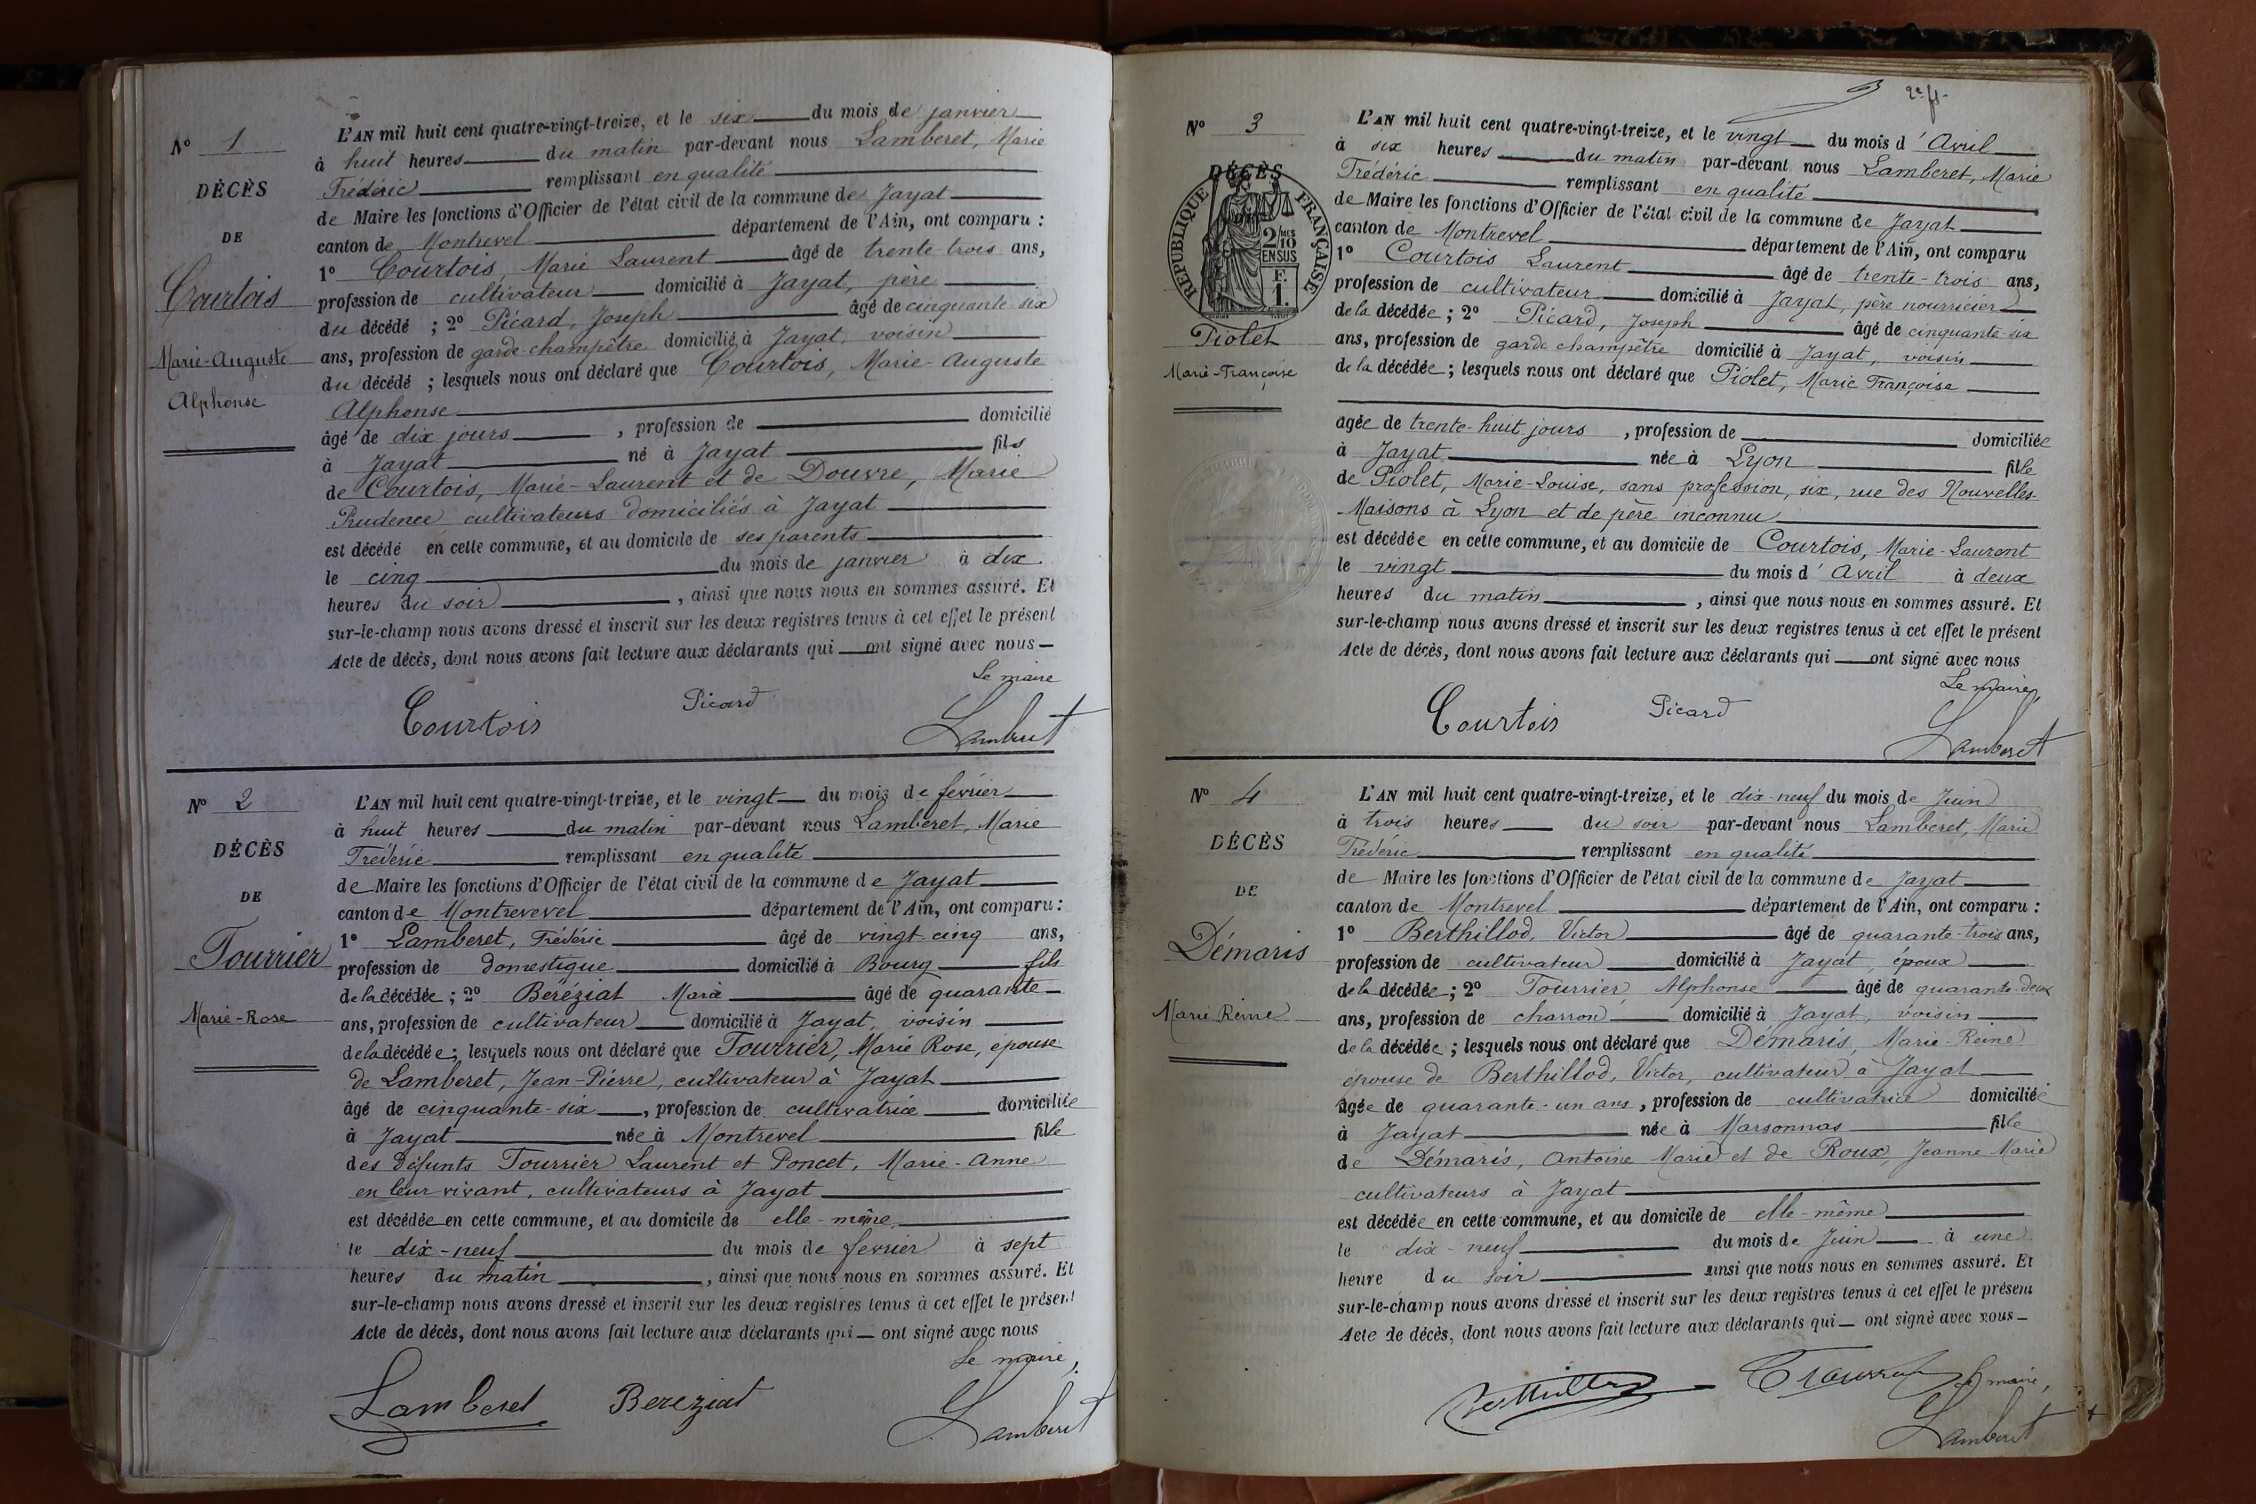 N° 1
DÉCÈS
DE
Courtois
Marie-Auguste
Alphonse
L'AN mil huit cent quatre-vingt-treize, et le six du mois de janvier
à huit heures du matin par-devant nous Lamberet, Marie
Frédéric remplissant en qualité
de Maire les fonctions d'Officier de l'état civil de la commune de Jayat
canton de Montrevel département de l'Ain, ont comparu :
1° Courtois, Marie Laurent âgé de trente trois ans,
profession de cultivateur domicilié à Jayat, père
du décédé ; 2° Picard, Joseph âgé de cinquante six
ans, profession de garde-champêtre domicilié à Jayat, voisin
du décédé ; lesquels nous ont déclaré que Courtois, Marie-Auguste
Alphonse
âgé de dix jours, profession de domicilié
à Jayat né à Jayat fils
de Courtois, Marie-Laurent et de Douvre, Marie
Prudence cultivateurs domiciliés à Jayat
est décédé en cette commune, et au domicile de ses parents
le cinq du mois de janvier à dix
heures du soir, ainsi que nous nous en sommes assuré. Et
sur-le-champ nous avons dressé et inscrit sur les deux registres tenus à cet effet le présent
Acte de décès, dont nous avons fait lecture aux déclarants qui ont signé avec nous
Le maire
Courtois Picard Lamberet
N° 2
DÉCÈS
DE
Fourrier
Marie-Rose
L'AN mil huit cent quatre-vingt-treize, et le vingt du mois de février
à huit heures du matin par-devant nous Lamberet, Marie
Frédéric remplissant en qualité
de Maire les fonctions d'Officier de l'état civil de la commune de Jayat
canton de Montrevevel département de l'Ain, ont comparu :
1° Lamberet, Frédéric âgé de vingt-cinq ans,
profession de domestique domicilié à Bourg fils
de la décédée ; 2° Béréziat Marie âgé de quarante
ans, profession de cultivateur domicilié à Jayat, voisin
de la décédée ; lesquels nous ont déclaré que Fourrier, Marie Rose, épouse
de Lamberet, Jean-Pierre, cultivateur à Jayat
âgé de cinquante-six, profession de cultivatrice domiciliée
à Jayat née à Montrevel fille
des défunts Fourrier Laurent et Poncet, Marie-Anne
en leur vivant, cultivateurs à Jayat
est décédée en cette commune, et au domicile de elle-même
le dix-neuf du mois de février à sept
heures du matin, ainsi que nous nous en sommes assuré. Et
sur-le-champ nous avons dressé et inscrit sur les deux registres tenus à cet effet le présent
Acte de décès, dont nous avons fait lecture aux déclarants qui ont signé avec nous
Le maire,
Lamberet Bereziat Lamberet
N° 3
DÉCÈS
RÉPUBLIQUE FRANÇAISE
2/10 MES
EN SUS
F.
1.
Piolet
Marie-Françoise
L'AN mil huit cent quatre-vingt-treize, et le vingt du mois d'Avril
à six heures du matin par-devant nous Lamberet, Marie
Frédéric remplissant en qualité
de Maire les fonctions d'Officier de l'état civil de la commune de Jayat
canton de Montrevel département de l'Ain, ont comparu
1° Courtois Laurent âgé de trente-trois ans,
profession de cultivateur domicilié à Jayat, père nourricier
de la décédée ; 2° Picard, Joseph âgé de cinquante-six
ans, profession de garde champêtre domicilié à Jayat, voisin
de la décédée ; lesquels nous ont déclaré que Piolet, Marie Françoise
agée de trente-huit jours, profession de domiciliée
à Jayat née à Lyon fille
de Piolet, Marie-Louise, sans profession, six, rue des Nouvelles-
Maisons à Lyon et de père inconnu
est décédée en cette commune, et au domicile de Courtois, Marie-Laurent
le vingt du mois d'Avril à deux
heures du matin, ainsi que nous nous en sommes assuré. Et
sur-le-champ nous avons dressé et inscrit sur les deux registres tenus à cet effet le présent
Acte de décès, dont nous avons fait lecture aux déclarants qui ont signé avec nous
Le maire,
Courtois Picard Lamberet
N° 4
DÉCÈS
DE
Démaris
Marie Reine
L'AN mil huit cent quatre-vingt-treize, et le dix-neuf du mois de Juin
à trois heures du soir par-devant nous Lamberet, Marie
Frédéric remplissant en qualité
de Maire les fonctions d'Officier de l'état civil de la commune de Jayat
canton de Montrevel département de l'Ain, ont comparu :
1° Berthillod, Victor âgé de quarante-trois ans,
profession de cultivateur domicilié à Jayat, époux
de la décédée ; 2° Fourrier, Alphonse âgé de quarante-deux
ans, profession de charron domicilié à Jayat, voisin
de la décédée ; lesquels nous ont déclaré que Démaris, Marie-Reine
épouse de Berthillod, Victor, cultivateur à Jayat
âgée de quarante-un ans, profession de cultivatrice domiciliée
à Jayat née à Marsonnas fille
de Démaris, Antoine Marie et de Roux, Jeanne Marie
cultivateurs à Jayat
est décédée en cette commune, et au domicile de elle-même
le dix-neuf du mois de Juin à une
heure du soir ainsi que nous nous en sommes assuré. Et
sur-le-champ nous avons dressé et inscrit sur les deux registres tenus à cet effet le présent
Acte de décès, dont nous avons fait lecture aux déclarants qui ont signé avec nous
Le maire,
Lamberet